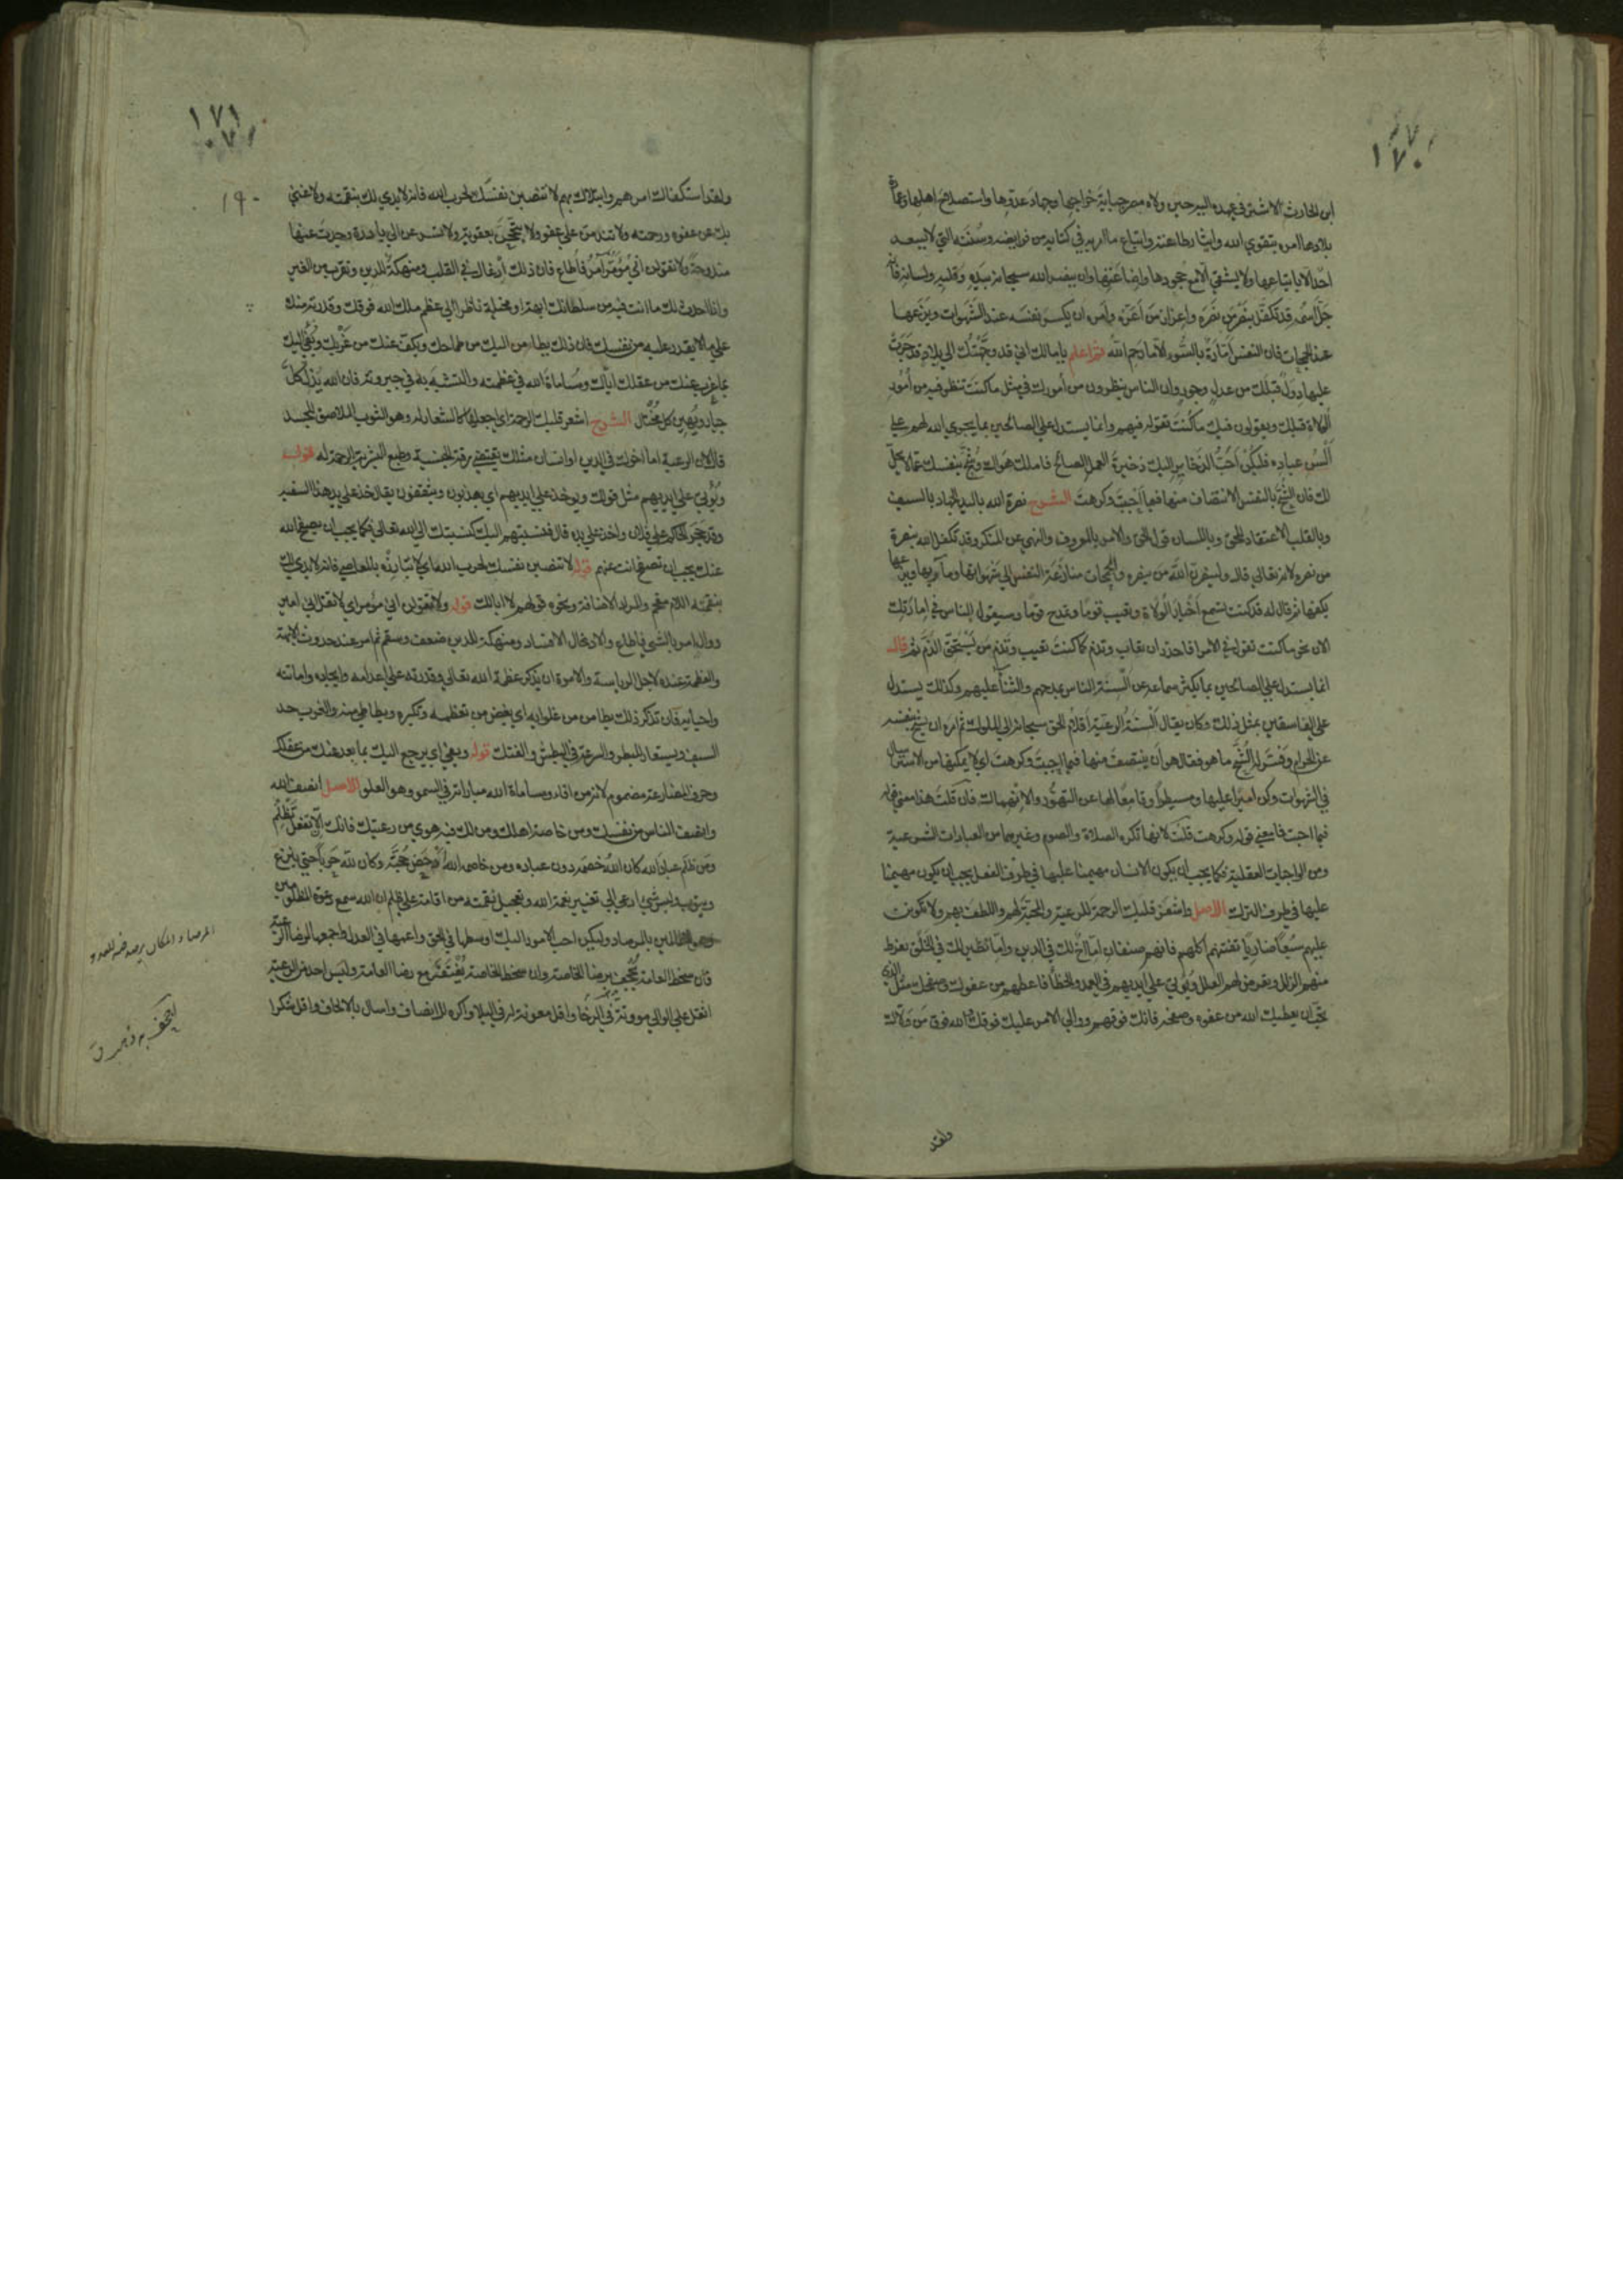 ١٧٠
ابن الحارث الاشتر في عهده اليه حين ولاه مصر جباية خراجها وجهاد عدوها واستصلاح اهلها وعمارة
بلادها امره بتقوي الله وايثار طاعته واتباع ما امر به في كتابه من فرايضه وسُننه التي لا يسعد
احد الا باتباعها ولا يشقي الا مع جحودها واضاعتها وان ينصر الله سبحانه بيده وقلبه ولسانه فانه
جل اسمه قد تكفل بنصر من نصره واعزاز من اعزه وامره ان يكسر نفسه عند الشهوات ويزعها
عند الجمحات فان النفس امارة بالسوء الا ما رحم الله ثم اعلم يا مالك اني قد وجهتك الي بلاد قد جرت
عليها دول قبلك من عدل وجور وان الناس ينظرون من أمورك في مثل ما كنت تنظر فيه من أمور
الولاة قبلك ويقولون فيك ما كنت تقوله فيهم وانما يستدل علي الصالحين بما يجري الله لهم علي
ألسن عباده فليكن احب الذخاير اليك ذخيرة العمل الصالح فاملك هواك وشح بنفسك عما لا يحل
لك فان الشح بالنفس الانتصاف منها فيما احبت وكرهت الشرح نصرة الله باليد الجهاد بالسيف
وبالقلب الاعتقاد للحق وباللسان قول الحق والامر بالمعروف والنهي عن المنكر وقد تكفل الله بنصرة
من نصره لانه تعالي قال ولينصرن الله من ينصره والجمحات منازعة النفس الي شهواتها ومآربها ويزعها
يكفها ثم قال له قد كنت تسمع أخبار الولاة وتعيب قوما وتمدح قوما وسيقول الناس في امارتك
الان نحو ما كنت تقول في الامرا فاحذر ان تعاب وتذم كما كنت تعيب وتذم من يستحق الذم ثم قال
انما يستدل علي الصالحين بما يكثر سماعه من السنة الناس بمدحهم والثنا عليهم وكذلك يستدل
علي الفاسقين بمثل ذلك وكان يقال ألسنة الرعية أقلام الحق سبحانه الي الملوك ثم امره ان يشح بنفسه
وفسر له الشح ما هو فقال هو أن ينتصف منها فيما احبت وكرهت اي لا يمكنها من الاسترسال
في الشهوات وكن اميرا عليها ومسيطرا وقامعا لها عن التهور والانهماك فان قلت هذا معني قوله
فيما احبت فما معني قوله وكرهت قلت لانها تكره الصلاة والصوم وغيرهما من العبادات الشرعية
ومن الواجبات العقلية فكما يجب أن يكون الانسان مهيمنا عليها في طرف الفعل يجب ان يكون مهيمنا
عليها في طرف الترك الاصل واشعر قلبك الرحمة للرعية والمحبة لهم واللطف بهم ولا تكونن
عليهم سبعا ضاريا تغتنم اكلهم فانهم صنفان اما أخ لك في الدين واما نظير لك في الخلق يفرط
منهم الزلل وتعرض لهم العلل ويُؤتي علي ايديهم في العمد والخطأ فاعطهم من عفوك وصفحك مثل الذي
تحب ان يعطيك الله من عفوه وصفحه فانك فوقهم ووالي الامر عليك فوقك والله فوق من ولاك
ولقد
١٧١
١٩٠
ولقد استكفاك امرهم وابتلاك بهم لا تنصبن نفسك لحرب الله فانه لا يدي لك بنقمته ولا غني
بك عن عفوه ورحمته ولا تندمن علي عفو ولا تبجحن بعقوبة ولا تسرعن الي بادرة وجدت عنها
مندوحة ولا تقولن اني مؤمر آمر فأطاع فان ذلك إدغال في القلب ومنهكة للدين وتقرب من الغير
واذا احدث لك ما انت فيه من سلطانك ابهة او مخيلة فانظر الي عظم ملك الله فوقك وقدرته منك
علي ما لا تقدر عليه من نفسك فان ذلك يطامن اليك من طماحك ويكف عنك من غربك ويفي اليك
بما عزب عنك من عقلك اياك ومساماة الله في عظمته والتشبه به في جبروته فان الله يذل كل
جبار ويهين كل مختال الشرح اشعر قلبك الرحمة اي اجعلها كالشعار له وهو الثوب الملاصق للجسد
قال لان الرعية اما اخوك في الدين او انسان مثلك تقتضي رقة الجنسية وطبع البشرية الرحمة له قوله
ويُؤتي علي ايديهم مثل قولك ويوخذ علي ايديهم اي يهذبون ويثقفون يقال خذ علي يد هذا السفيه
وقد حجر الحاكم علي فلان واخذ علي يده قال فنسبتهم اليك كنسبتك الي الله تعالي فكما يجب ان يصفح الله
عنك يجب ان تصفح انت عنهم قوله لا تنصبن نفسك لحرب الله اي لا تبارزه بالمعاصي فانه لا يدي لك
بنقمته اللام مقحم والمراد الاضافة ونحوه قولهم لا ابالك قوله ولا تقولن اني مؤمر اي لا تقل اني امير
ووال امر بالشي فاطاع والادغال الافساد ومنهكة للدين ضعف وسقم ثم امره عند حدوث الابهة
والعظمة عنده لاجل الرياسة والامرة ان يذكر عظمة الله تعالي وقدرته علي اعدامه وايجاده واماتته
واحيائه فان تذكر ذلك يطامن من غلوايه اي يغض من تعظمه وتكبره ويطاطي منه والغرب حد
السيف ويستعار للسطو والسرعة في البطش والفتك قوله ويفي اي يرجع اليك بما بعد عنك من عقلك
وحرف المضارعة مضموم لانه من افاء ومساماة الله مباراته في السمو وهو العلو الاصل أنصف الله
وانصف الناس من نفسك ومن خاصة اهلك ومن لك فيه هوي من رعيتك فانك الا تفعل تظلم
ومن ظلم عباد الله كان الله خصمه دون عباده ومن خاصمه الله أدحض حجته وكان لله حربا حتي ينزع
ويتوب وليس شي ادعي الي تغيير نعمة الله وتعجيل نقمته من اقامة علي ظلم ان الله سميع دعوة المظلومين
وهو للظالمين بالمرصاد وليكن احب الامور اليك اوسطها في الحق واعمها في العدل واجمعها لرضا الرعية
فان سخط العامة يجحف برضا الخاصة وان سخط الخاصة يُغتفر مع رضا العامة وليس احد من الرعية
اثقل علي الوالي موونة في الرخا واقل معونة له في البلا واكره للانصاف واسال بالالحاف واقل شكرا
المرصاد المكان يرصد فيه للعدو